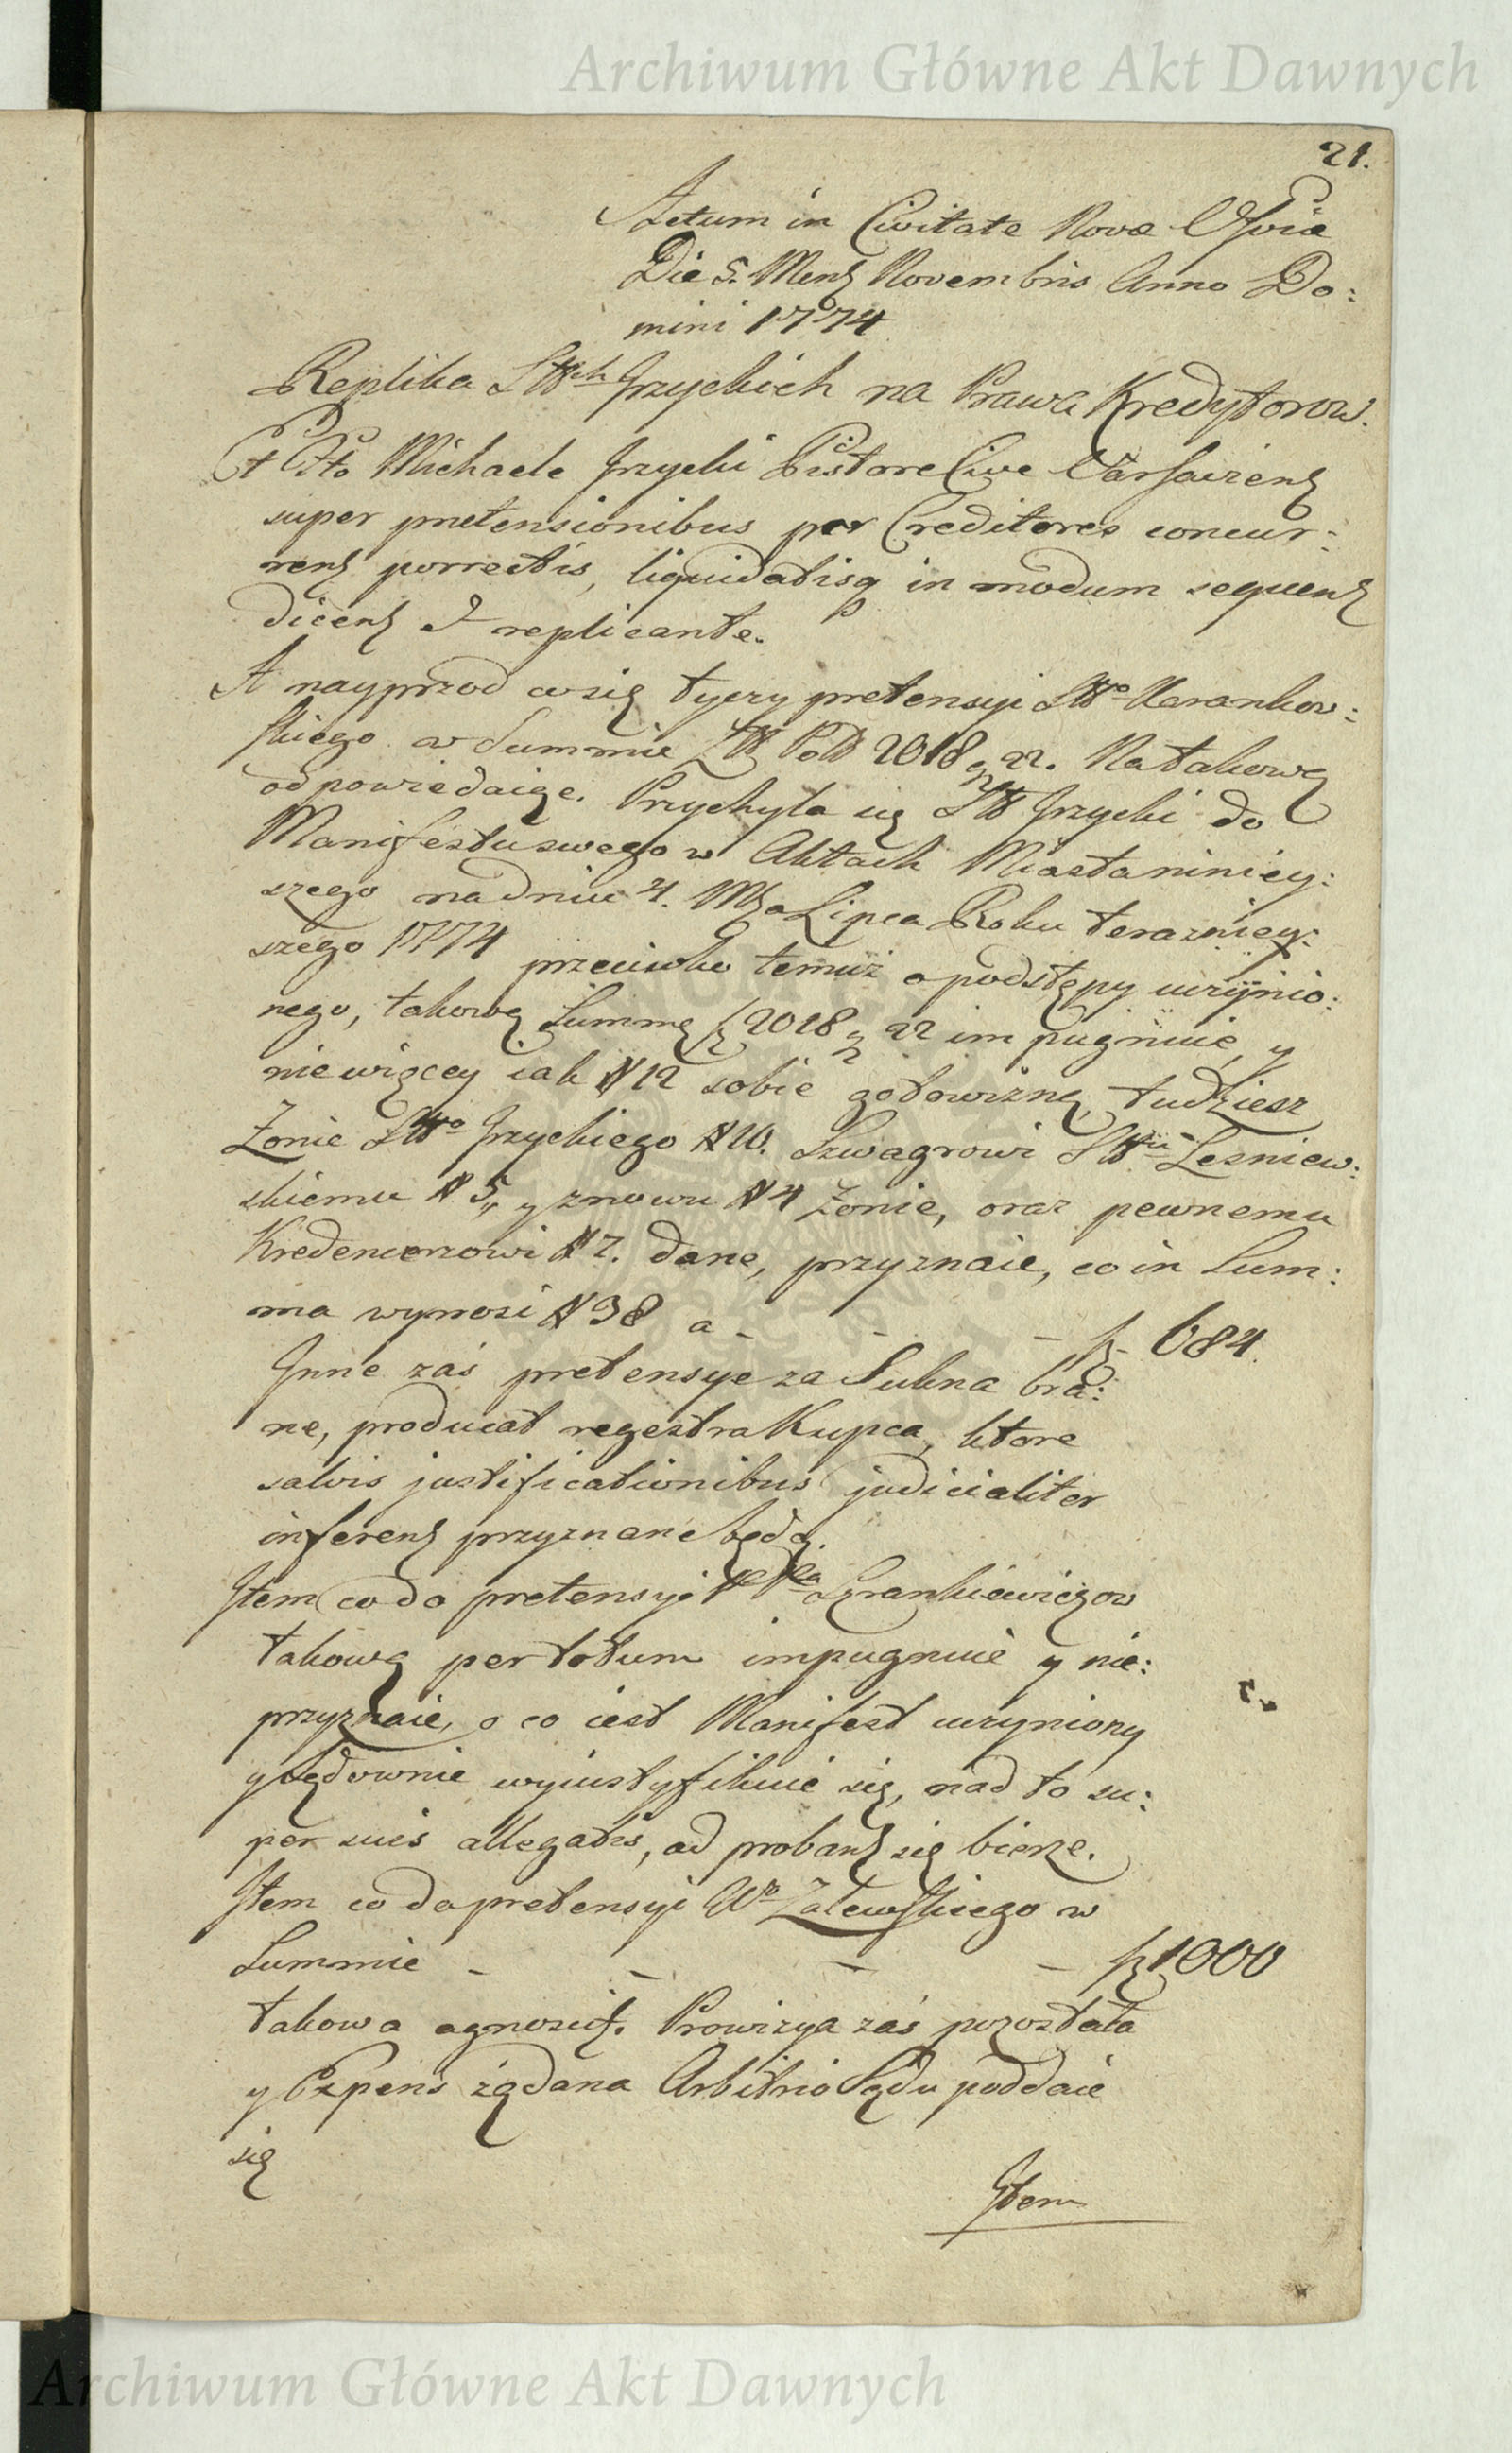 Archiwum Główne Akt Dawnych
21.
Actum in Civitate Nova
Die 5. Mens Novembris Anno Do:
mini 1774
Replika Jrzyckich na Prawa Kredytorow.
Michaele Jrzycki Pistore Cive Varsaviens
super pretensionibus per Creditores concur:
rens porrectis, liquidatisq in modum sequens
dicens & replicante.
A nayprzod co się tyczy pretensyi
skiego w Summie 2018 22. Na takową
odpowiedaiąc. Przychyla się Jrzycki do
Manifestu swego w Aktach Miasta niniey:
szego na dniu 4. Lipca Roku terazniey:
szego 1774 przeciwko temuż o podstępy uczynio:
nego, takową Summę 2018 22 impugnuie, y
niewięcey iak # 12 sobie gotowizną, tudziesz
Zonie Jrzyckiego # 10. Szwagrowi Lesniew:
skiemu # 5, y znowu # 4 Zonie, oraz pewnemu
Kredencerzowi # 7. dane, przyznaie, co in Sum:
ma wynosi # 38 a - - - 684.
Inne zaś pretensye za Sukna bra:
ne, producat regestra Kupca, ktore
salvis justificationibus judicialiter
inferens przyznane będą.
Item co do pretensyi
takową per totum impugnuie y nie:
przyznaie, o co iest Manifest uczyniony
y sądownie wyiustyfikuie się, nad to su:
per suis allegatis, ad probans się bierze.
Item co do pretensyi Wo Zalewskiego w
Summie - - - - 1000
takowa agnosci. Prowizya zaś pozostała
y Expens żądana Arbitrio Sądu poddaie
się
Item
Archiwum Główne Akt Dawnych